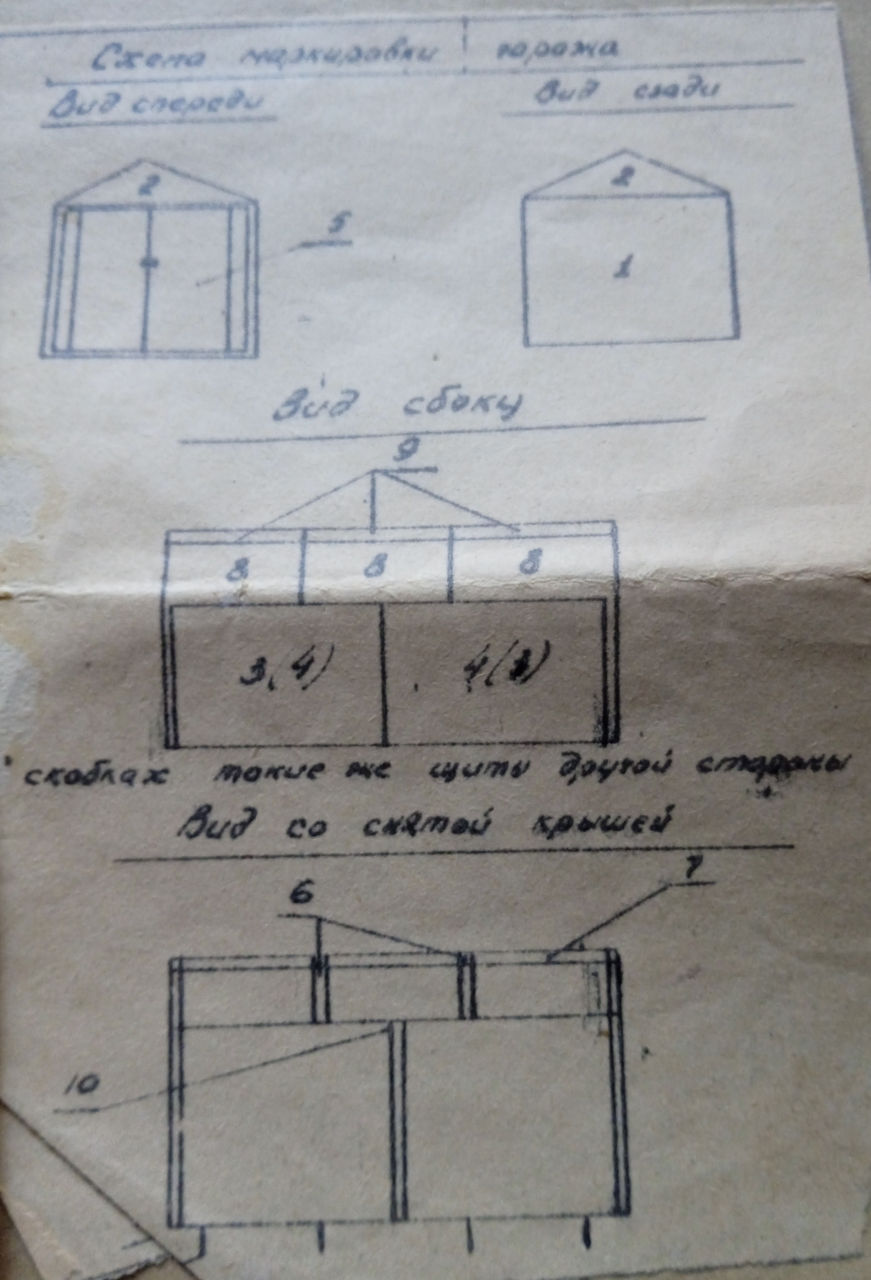 Схема маркировки гаража
Вид спереди
Вид сзади
2
5
2
1
Вид сбоку
9
8 8 8
3(4) 4(3)
скобках такие же щиты другой стороны
Вид со снятой крышей
6
7
10